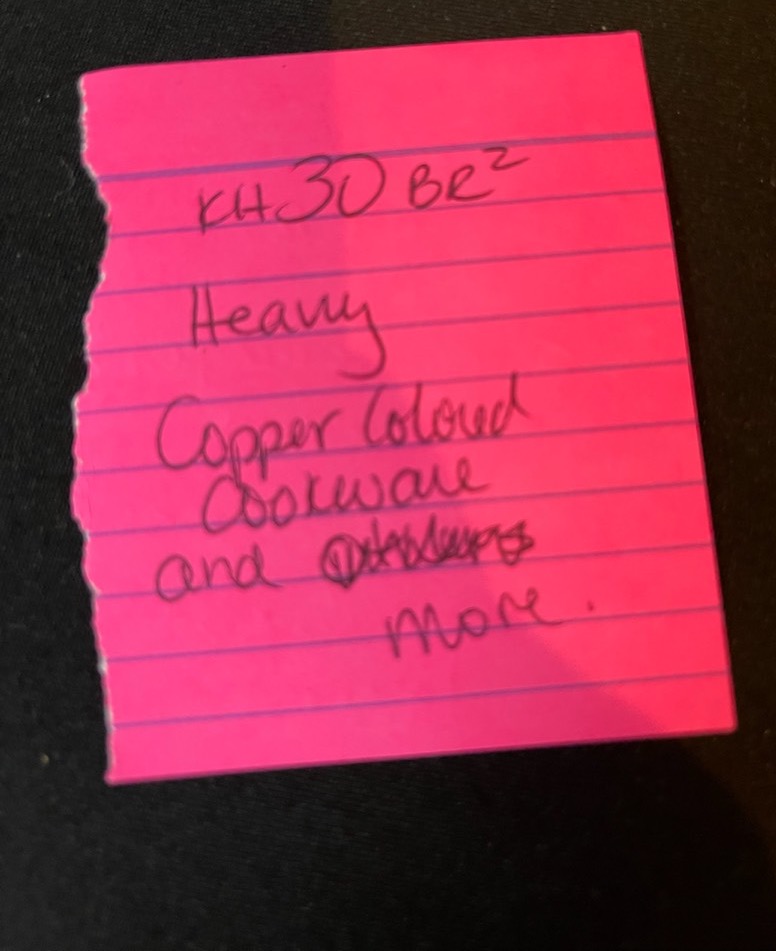 KH30 BR²
Heavy
Copper Colored
Cookware
and
more.